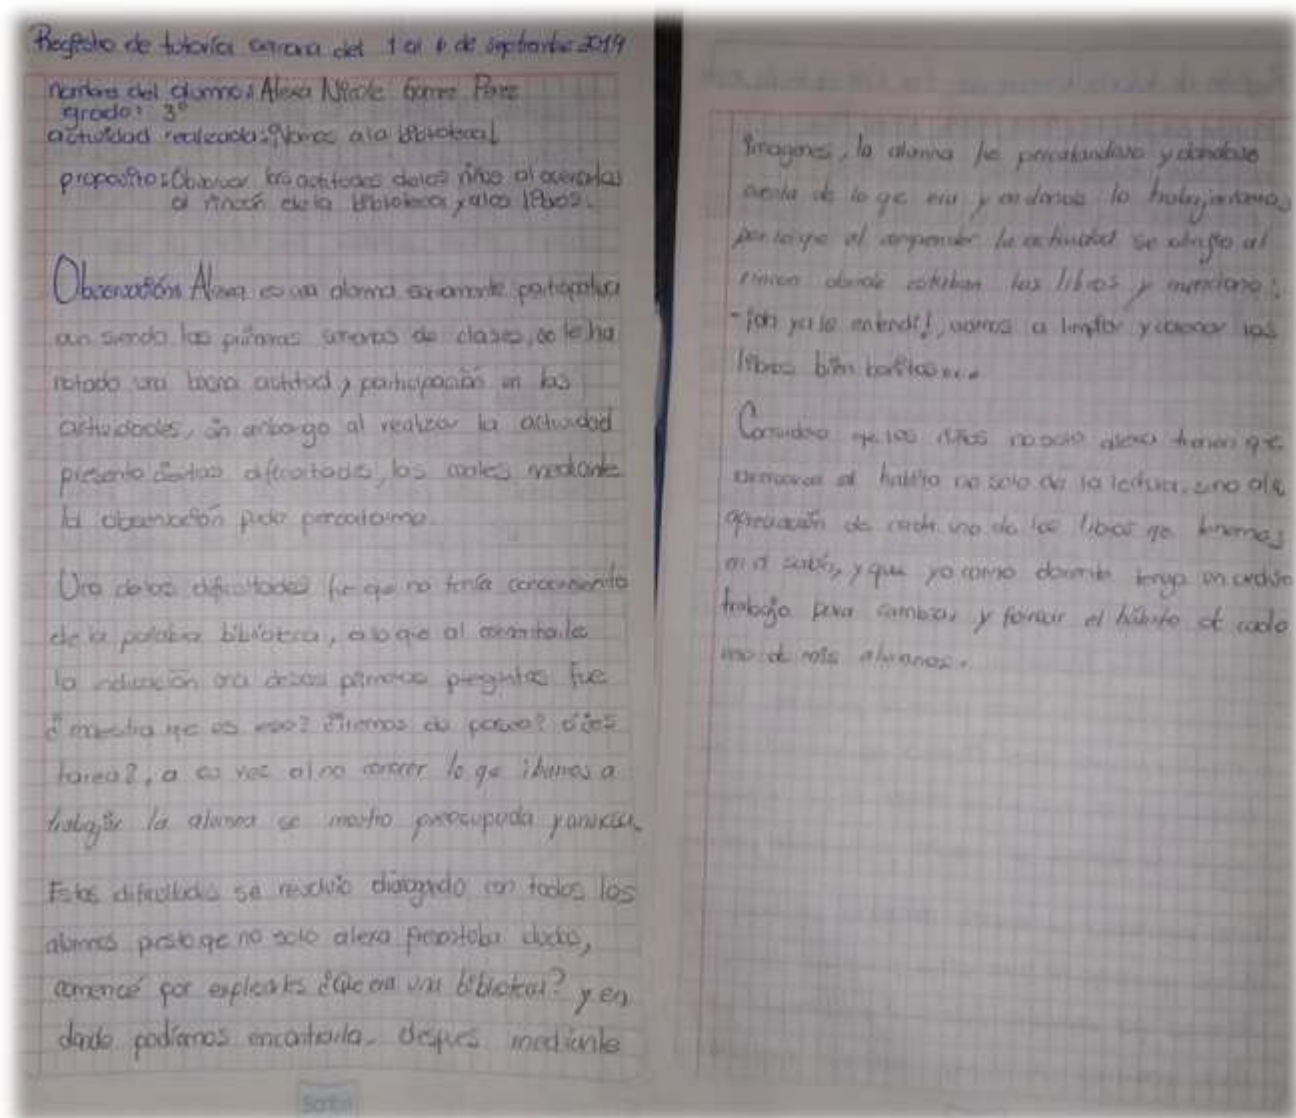 Registro de tutoría semana del 1 al 6 de septiembre 2014
nombre del alumno: Alexa Nicole Gomez Perez
grado: 3°
actividad realizada: ¡Vamos a la biblioteca!
proposito: Observar las actitudes de los niños al acercarlos
al rincón de la biblioteca y a los libros.
Observación: Alexa es una alumna sumamente participativa
aun siendo las primeras semanas de clases, se le ha
notado una buena actitud y participación en las
actividades, sin embargo al realizar la actividad
presento ciertas dificultades, las cuales mediante
la observación pude percatarme.
Una de las dificultades fue que no tenía conocimiento
de la palabra biblioteca, a lo que al comentarle
la indicación una de sus primeras preguntas fue
¿maestra que es eso? ¿iremos de paseo? ó ¿es
tarea?, a su vez al no conocer lo que ibamos a
trabajar la alumna se mostro preocupada y ansiosa.
Estas dificultades se resolvio dialogando con todos los
alumnos puesto que no solo alexa presentaba duda,
comencé por explicarles ¿Que era una biblioteca? y en
donde podíamos encontrarla. despues mediante
imagenes, la alumna fue percatandose y dandose
cuenta de lo que era y en donde lo trabajariamos,
por lo que al comprender la actividad se dirigio al
rincon donde estaban los libros y menciono:
-¡ah ya le entendi!, vamos a limpiar y acomodar los
libros bien bonitos...
Considero que los niños no solo alexa tienen que
al habito no solo de la lectura, sino a la
apreciación de cada uno de los libros que tenemos
en el salón, y que yo como docente tengo un arduo
trabajo para cambiar y formar el hábito de cada
uno de mis alumnos.